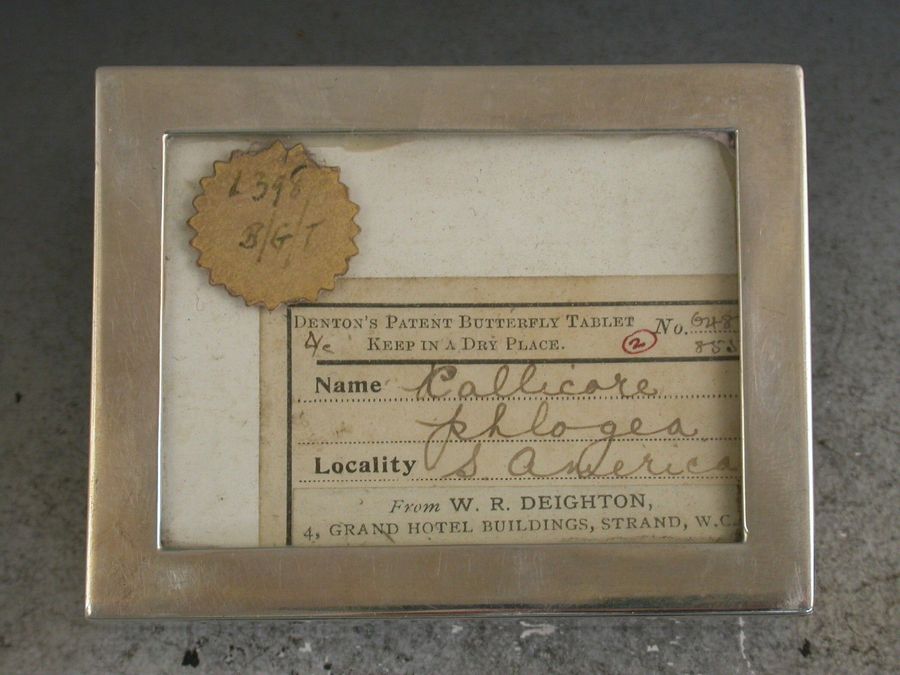 L 398
B/G/T
DENTON'S PATENT BUTTERFLY TABLET No. 648
4/c KEEP IN A DRY PLACE. 2
Name Kallicore
phlogea
Locality S. America
From W. R. DEIGHTON,
4, GRAND HOTEL BUILDINGS, STRAND, W.C.